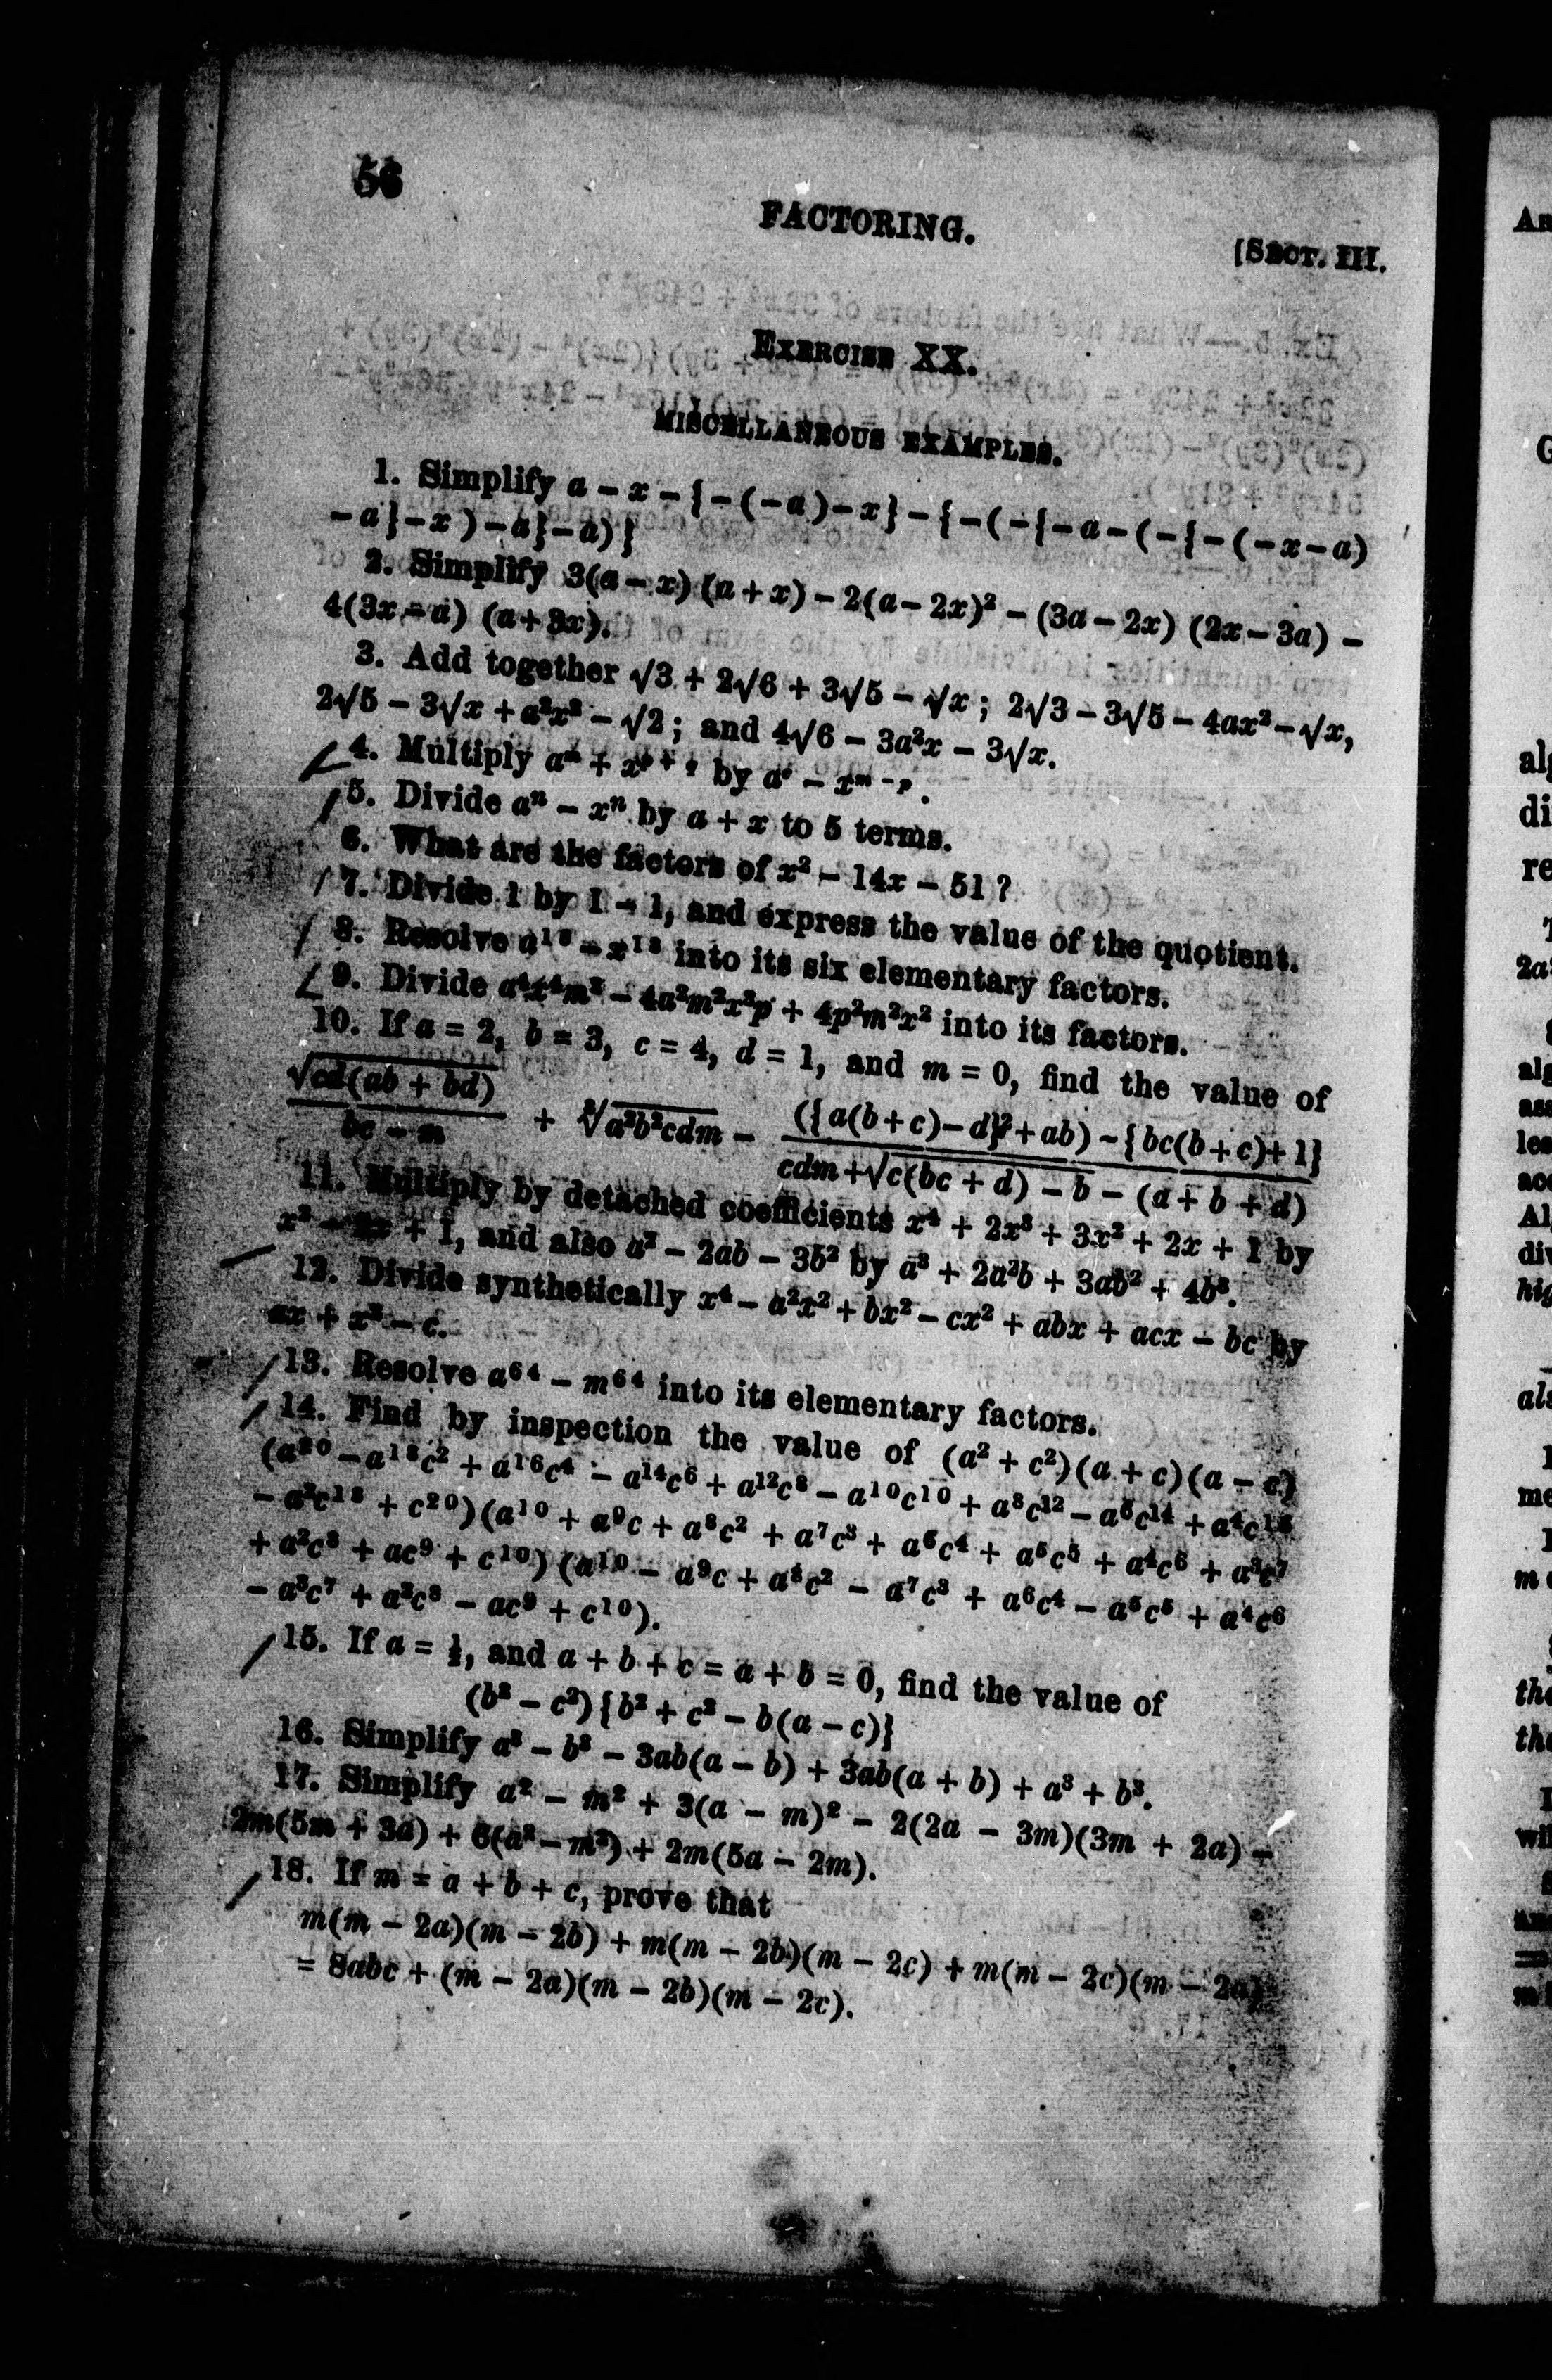 56
FACTORING.
[SECT. III.
EXERCISE XX.
MISCELLANEOUS EXAMPLES.
1. Simplify a − x − {−(−a)−x} − {−(−{−a−(−{−(−x−a)
−a}−x)−a}−a)}
2. Simplify 3(a − x) (a + x) − 2(a − 2x)² − (3a − 2x) (2x − 3a) −
4(3x − a) (a + 3x).
3. Add together √3 + 2√6 + 3√5 − √x ; 2√3 − 3√5 − 4ax² − √x,
2√5 − 3√x + a²x² − √2 ; and 4√6 − 3a²x − 3√x.
4. Multiply by
5. Divide aⁿ − xⁿ by a + x to 5 terms.
6. What are the factors of x² − 14x − 51 ?
7. Divide 1 by 1 − 1, and express the value of the quotient.
8. Resolve a¹⁸ − x¹⁸ into its six elementary factors.
9. Divide a⁴x⁴m² − 4a²m²x³p + 4p²m²x² into its factors.
10. If a = 2, b = 3, c = 4, d = 1, and m = 0, find the value of
√cd(ab + bd) / bc − m + ∛a²b²cdm − ({a(b+c)−d}²+ab) − {bc(b+c)+1} / cdm + √c(bc + d) − b − (a + b + d)
11. Multiply by detached coefficients x⁴ + 2x³ + 3x² + 2x + 1 by
x² − 2x + 1, and also a² − 2ab − 3b² by a³ + 2a²b + 3ab² + 4b³.
12. Divide synthetically x⁴ − a²x² + bx² − cx² + abx + acx − bc by
ax + x² − c.
13. Resolve a⁶⁴ − m⁶⁴ into its elementary factors.
14. Find by inspection the value of (a² + c²)(a + c)(a − c)
(a²⁰ − a¹⁸c² + a¹⁶c⁴ − a¹⁴c⁶ + a¹²c⁸ − a¹⁰c¹⁰ + a⁸c¹² − a⁶c¹⁴ + a⁴c¹⁶
− a²c¹⁸ + c²⁰)(a¹⁰ + a⁹c + a⁸c² + a⁷c³ + a⁶c⁴ + a⁵c⁵ + a⁴c⁶ + a³c⁷
+ a²c⁸ + ac⁹ + c¹⁰) (a¹⁰ − a⁹c + a⁸c² − a⁷c³ + a⁶c⁴ − a⁵c⁵ + a⁴c⁶
− a³c⁷ + a²c⁸ − ac⁹ + c¹⁰).
15. If a = ½, and a + b + c = a + b = 0, find the value of
(b² − c²) {b² + c² − b(a − c)}
16. Simplify a³ − b³ − 3ab(a − b) + 3ab(a + b) + a³ + b³.
17. Simplify a² − m² + 3(a − m)² − 2(2a − 3m)(3m + 2a) −
2m(5m + 3a) + 6(a² − m²) + 2m(5a − 2m).
18. If m = a + b + c, prove that
m(m − 2a)(m − 2b) + m(m − 2b)(m − 2c) + m(m − 2c)(m − 2a)
= 8abc + (m − 2a)(m − 2b)(m − 2c).